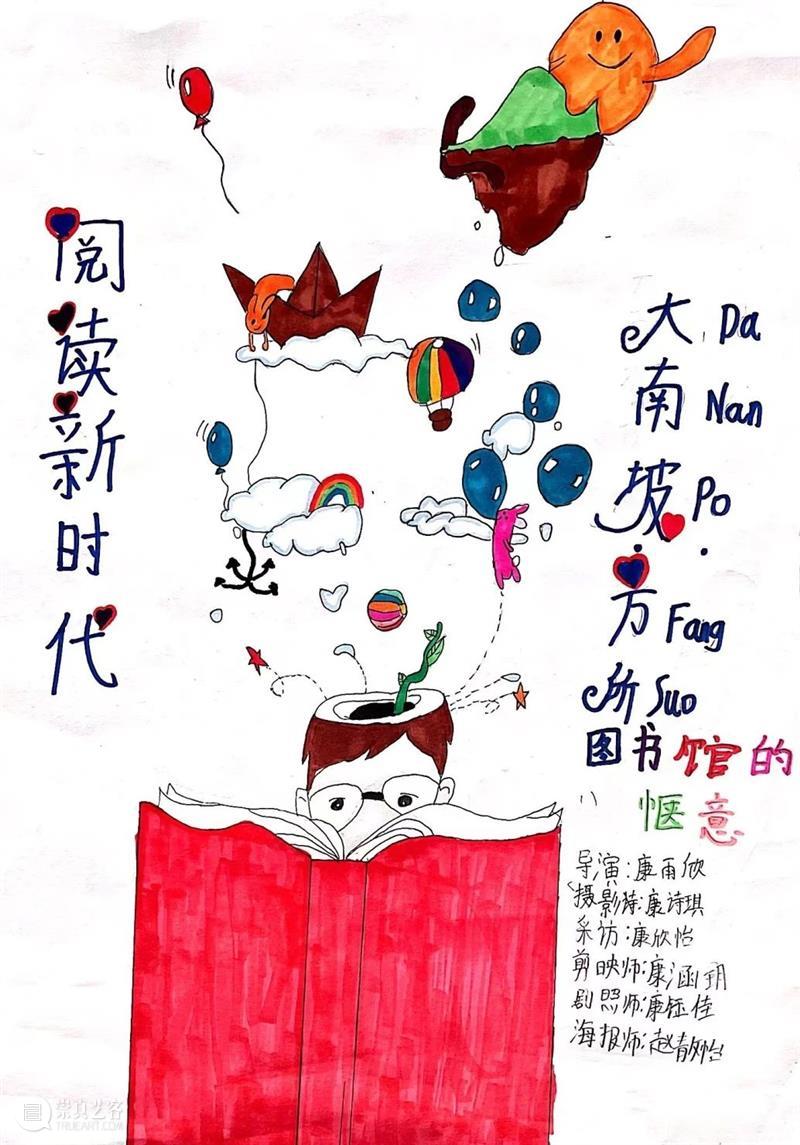 阅读新时代
大 Da
南 Nan
坡 Po
· ·
方 Fang
所 Suo
图书馆的
惬意
导演:康雨欣
摄影师:康诗琪
采访:康欣怡
剪映师:康涵玥
剧照师:康钰佳
海报师:赵
崇真艺客
WWW.TRUEART.COM